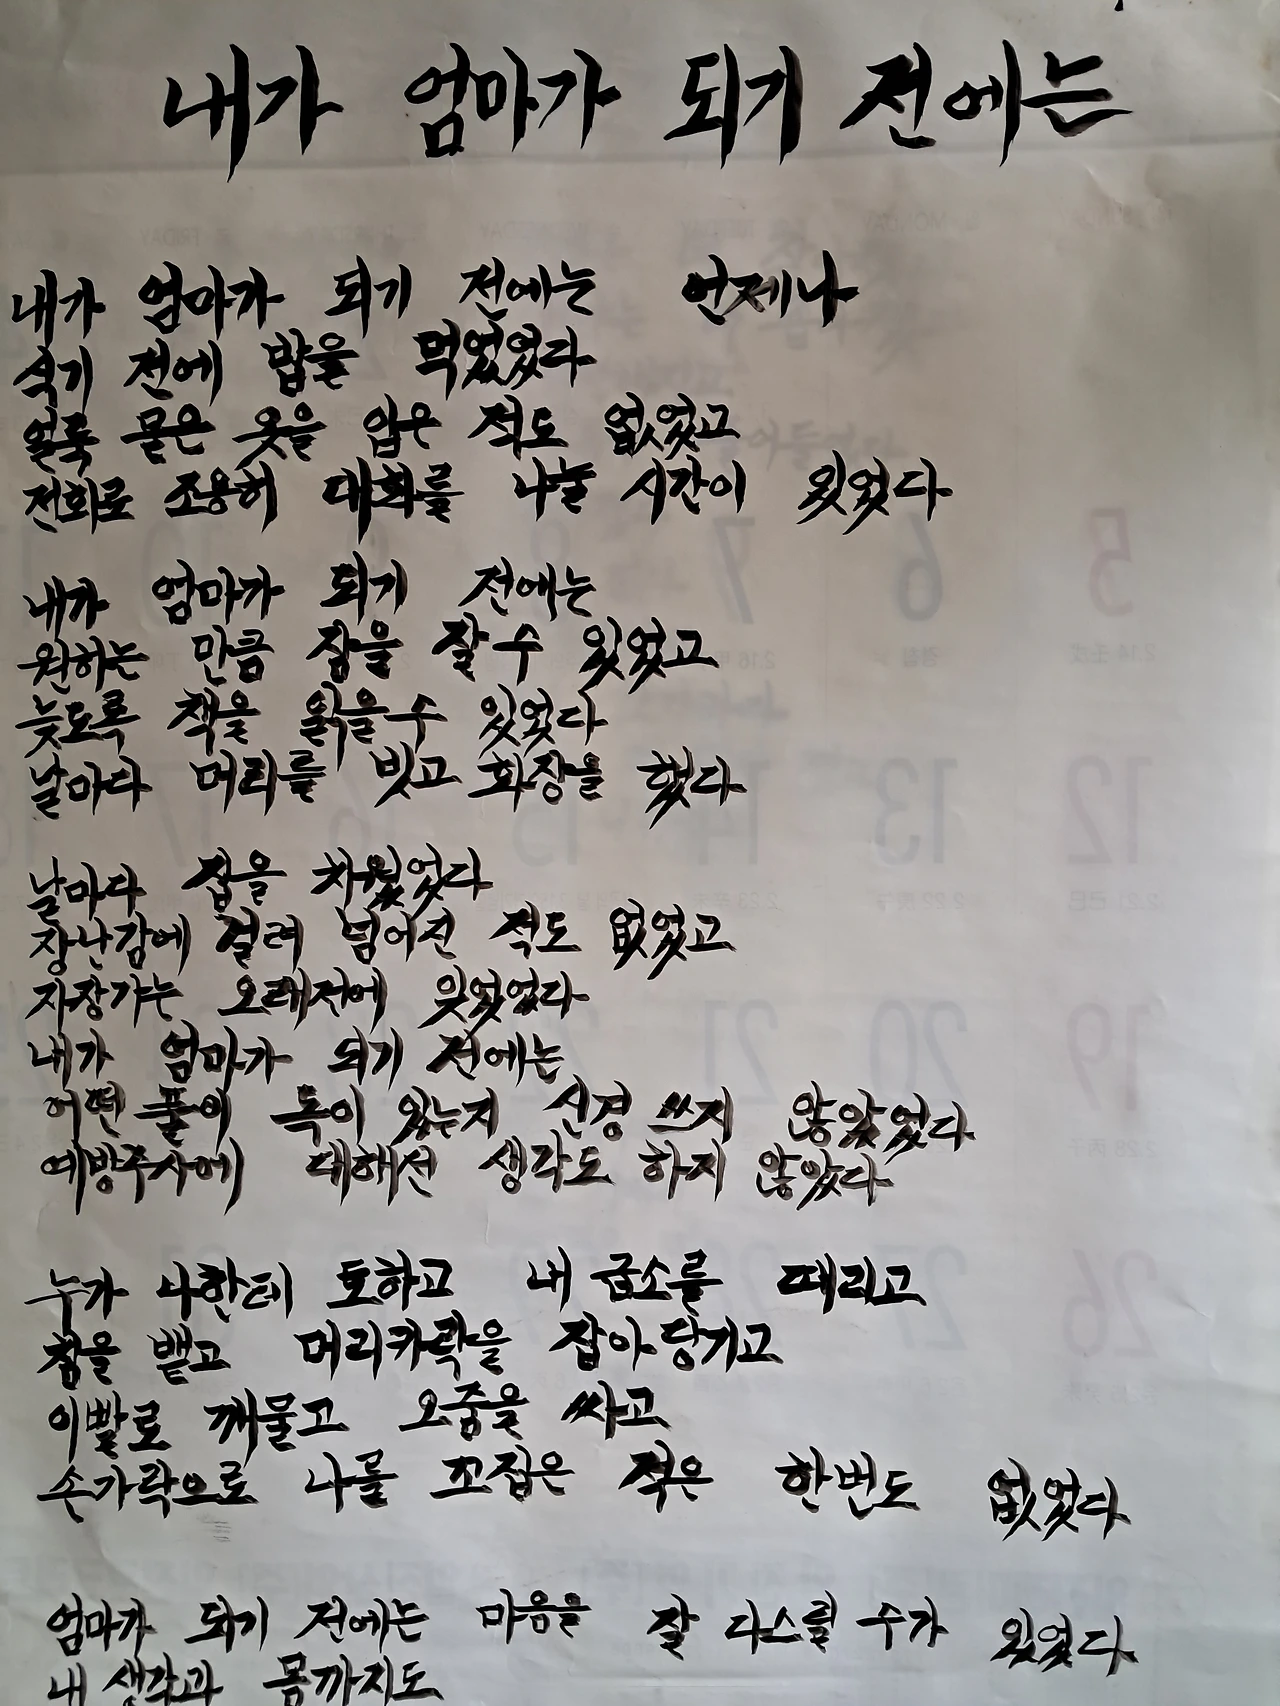 내가 엄마가 되기 전에는
내가 엄마가 되기 전에는 언제나
식기 전에 밥을 먹었었다
얼룩 묻은 옷을 입은 적도 없었고
전화로 조용히 대화를 나눌 시간이 있었다
내가 엄마가 되기 전에는
원하는 만큼 잠을 잘 수 있었고
늦도록 책을 읽을 수 있었다
날마다 머리를 빗고 화장을 했다
날마다 집을 치웠었다
장난감에 걸려 넘어진 적도 없었고
자장가는 오래전에 잊었었다
내가 엄마가 되기 전에는
어떤 풀이 독이 있는지 신경 쓰지 않았었다
예방주사에 대해선 생각도 하지 않았다
누가 나한테 토하고 내 급소를 때리고
침을 뱉고 머리카락을 잡아당기고
이빨로 깨물고 오줌을 싸고
손가락으로 나를 꼬집은 적은 한번도 없었다
엄마가 되기 전에는 마음을 잘 다스릴 수가 있었다
내 생각과 몸까지도